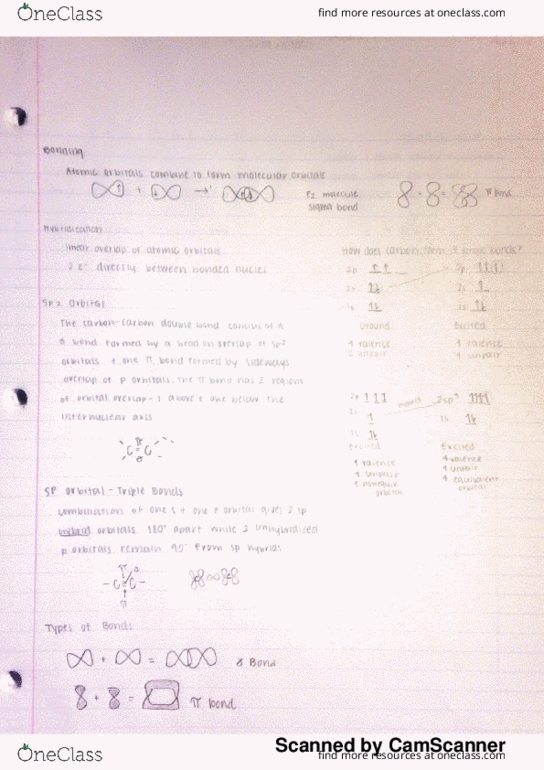 OneClass
find more resources at oneclass.com
Bonding
Atomic orbitals combine to form molecular orbitals
F2 molecule
sigma bond
π bond
Hybridization
linear overlap of atomic orbitals
2 e⁻ directly between bonded nuclei
How does carbon form 4 single bonds?
2p 2p
2s 2s
1s 1s
Ground Excited
4 valence 4 valence
2 unpair 4 unpair
sp2 orbital
The carbon-carbon double bond consists of a
σ bond formed by a head on overlap of sp²
orbitals + one π bond formed by sideways
overlap of p orbitals. The π bond has 2 regions
of orbital overlap - 1 above + one below the
internuclear axis
2p 2sp³
2s 1s
1s
excited Excited
4 valence 4 valence
4 unpair 4 unpair
4 orbital 4 equivalent
orbital
π
C=C
σ
SP orbital - Triple Bonds
combination of one s + one p orbital gives 2 sp
hybrid orbitals 180° apart while 2 unhybridized
p orbitals remain 90° from sp hybrids
π σ
-C=C-
π
Types of Bonds
+ = σ Bond
+ = π bond
Scanned by CamScanner
OneClass
find more resources at oneclass.com